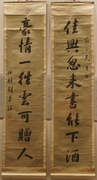 佳興忽來書能下酒
豪情一往雲可贈人